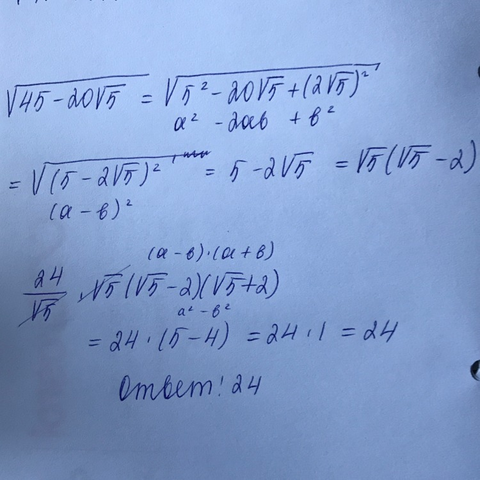 √45-20√5 = √5²-20√5+(2√5)²
a² -2ab +b²
= √(5-2√5)² = 5-2√5 = √5(√5-2)
(a-b)²
(a-b)·(a+b)
24/√5 · √5(√5-2)(√5+2)
a²-b²
= 24·(5-4) = 24·1 = 24
Ответ! 24